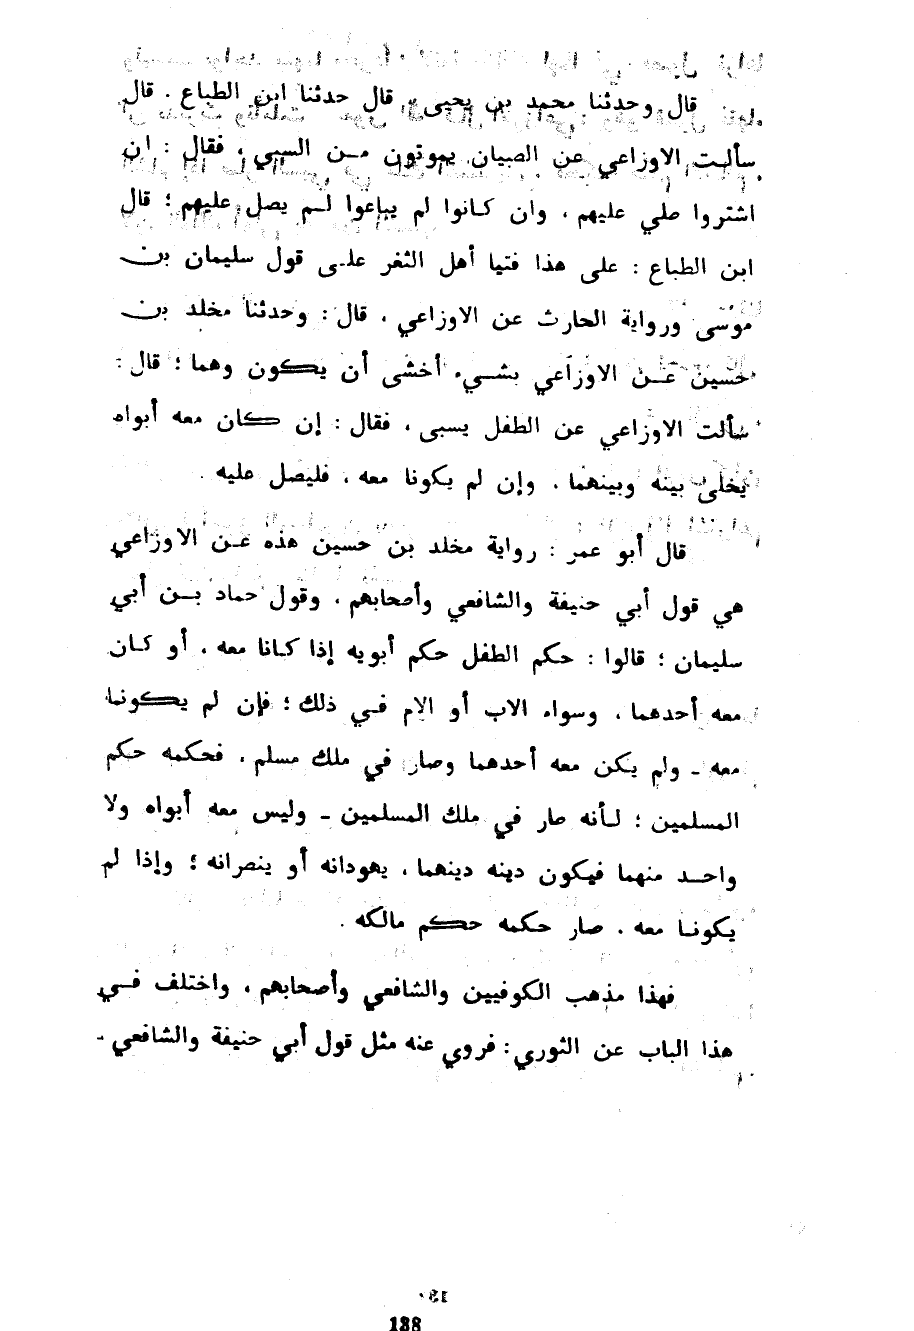 قال وحدثنا محمد بن يحيى، قال حدثنا ابن الطباع. قال
سألت الاوزاعي عن الصبيان يموتون من السبي، فقال: ان
اشتروا صلي عليهم، وان كانوا لم يباعوا لم يصل عليهم؛ قال
ابن الطباع: على هذا فتيا أهل الثغر على قول سليمان بن
موسى ورواية الحارث عن الاوزاعي، قال: وحدثنا مخلد بن
حسين عن الاوزاعي بشيء أخشى أن يكون وهما؛ قال:
سألت الاوزاعي عن الطفل يسبى، فقال: إن كان معه أبواه
يخلى بينه وبينهما. وإن لم يكونا معه، فليصل عليه.
قال أبو عمر: رواية مخلد بن حسين هذه عن الاوزاعي
هي قول أبي حنيفة والشافعي وأصحابهم، وقول حماد بن أبي
سليمان؛ قالوا: حكم الطفل حكم أبويه إذا كانا معه، أو كان
معه أحدهما، وسواء الاب أو الام في ذلك؛ فإن لم يكونا
معه ـ ولم يكن معه أحدهما وصار في ملك مسلم، فحكمه حكم
المسلمين؛ لأنه صار في ملك المسلمين ـ وليس معه أبواه ولا
واحد منهما فيكون دينه دينهما، يهودانه أو ينصرانه؛ وإذا لم
يكونا معه، صار حكمه حكم مالكه.
فهذا مذهب الكوفيين والشافعي وأصحابهم، واختلف في
هذا الباب عن الثوري: فروي عنه مثل قول أبي حنيفة والشافعي ـ
138